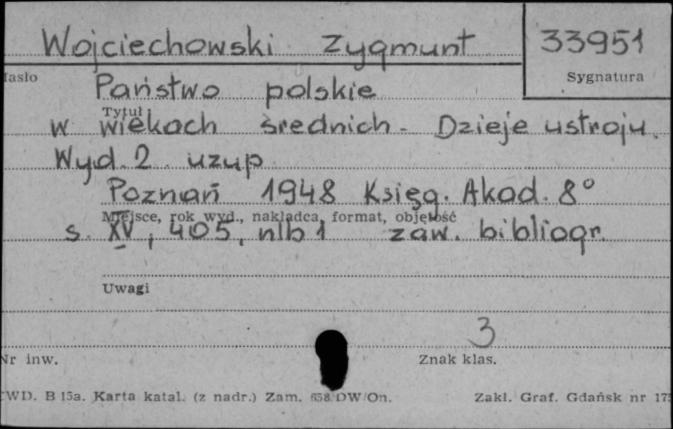 Wojciechowski Zygmunt 33951
Hasło Sygnatura
Państwo polskie
Tytuł
w wiekach średnich - Dzieje ustroju.
Wyd. 2 uzup
Poznań 1948 Księg. Akad. 8°
Miejsce, rok wyd., nakładca, format, objętość
s. XV, 405, nlb 1 zaw. bibliogr.
Uwagi
3
Nr inw. Znak klas.
CWD. B 15a. Karta katal. (z nadr.) Zam. 658/DW/On. Zakł. Graf. Gdańsk nr